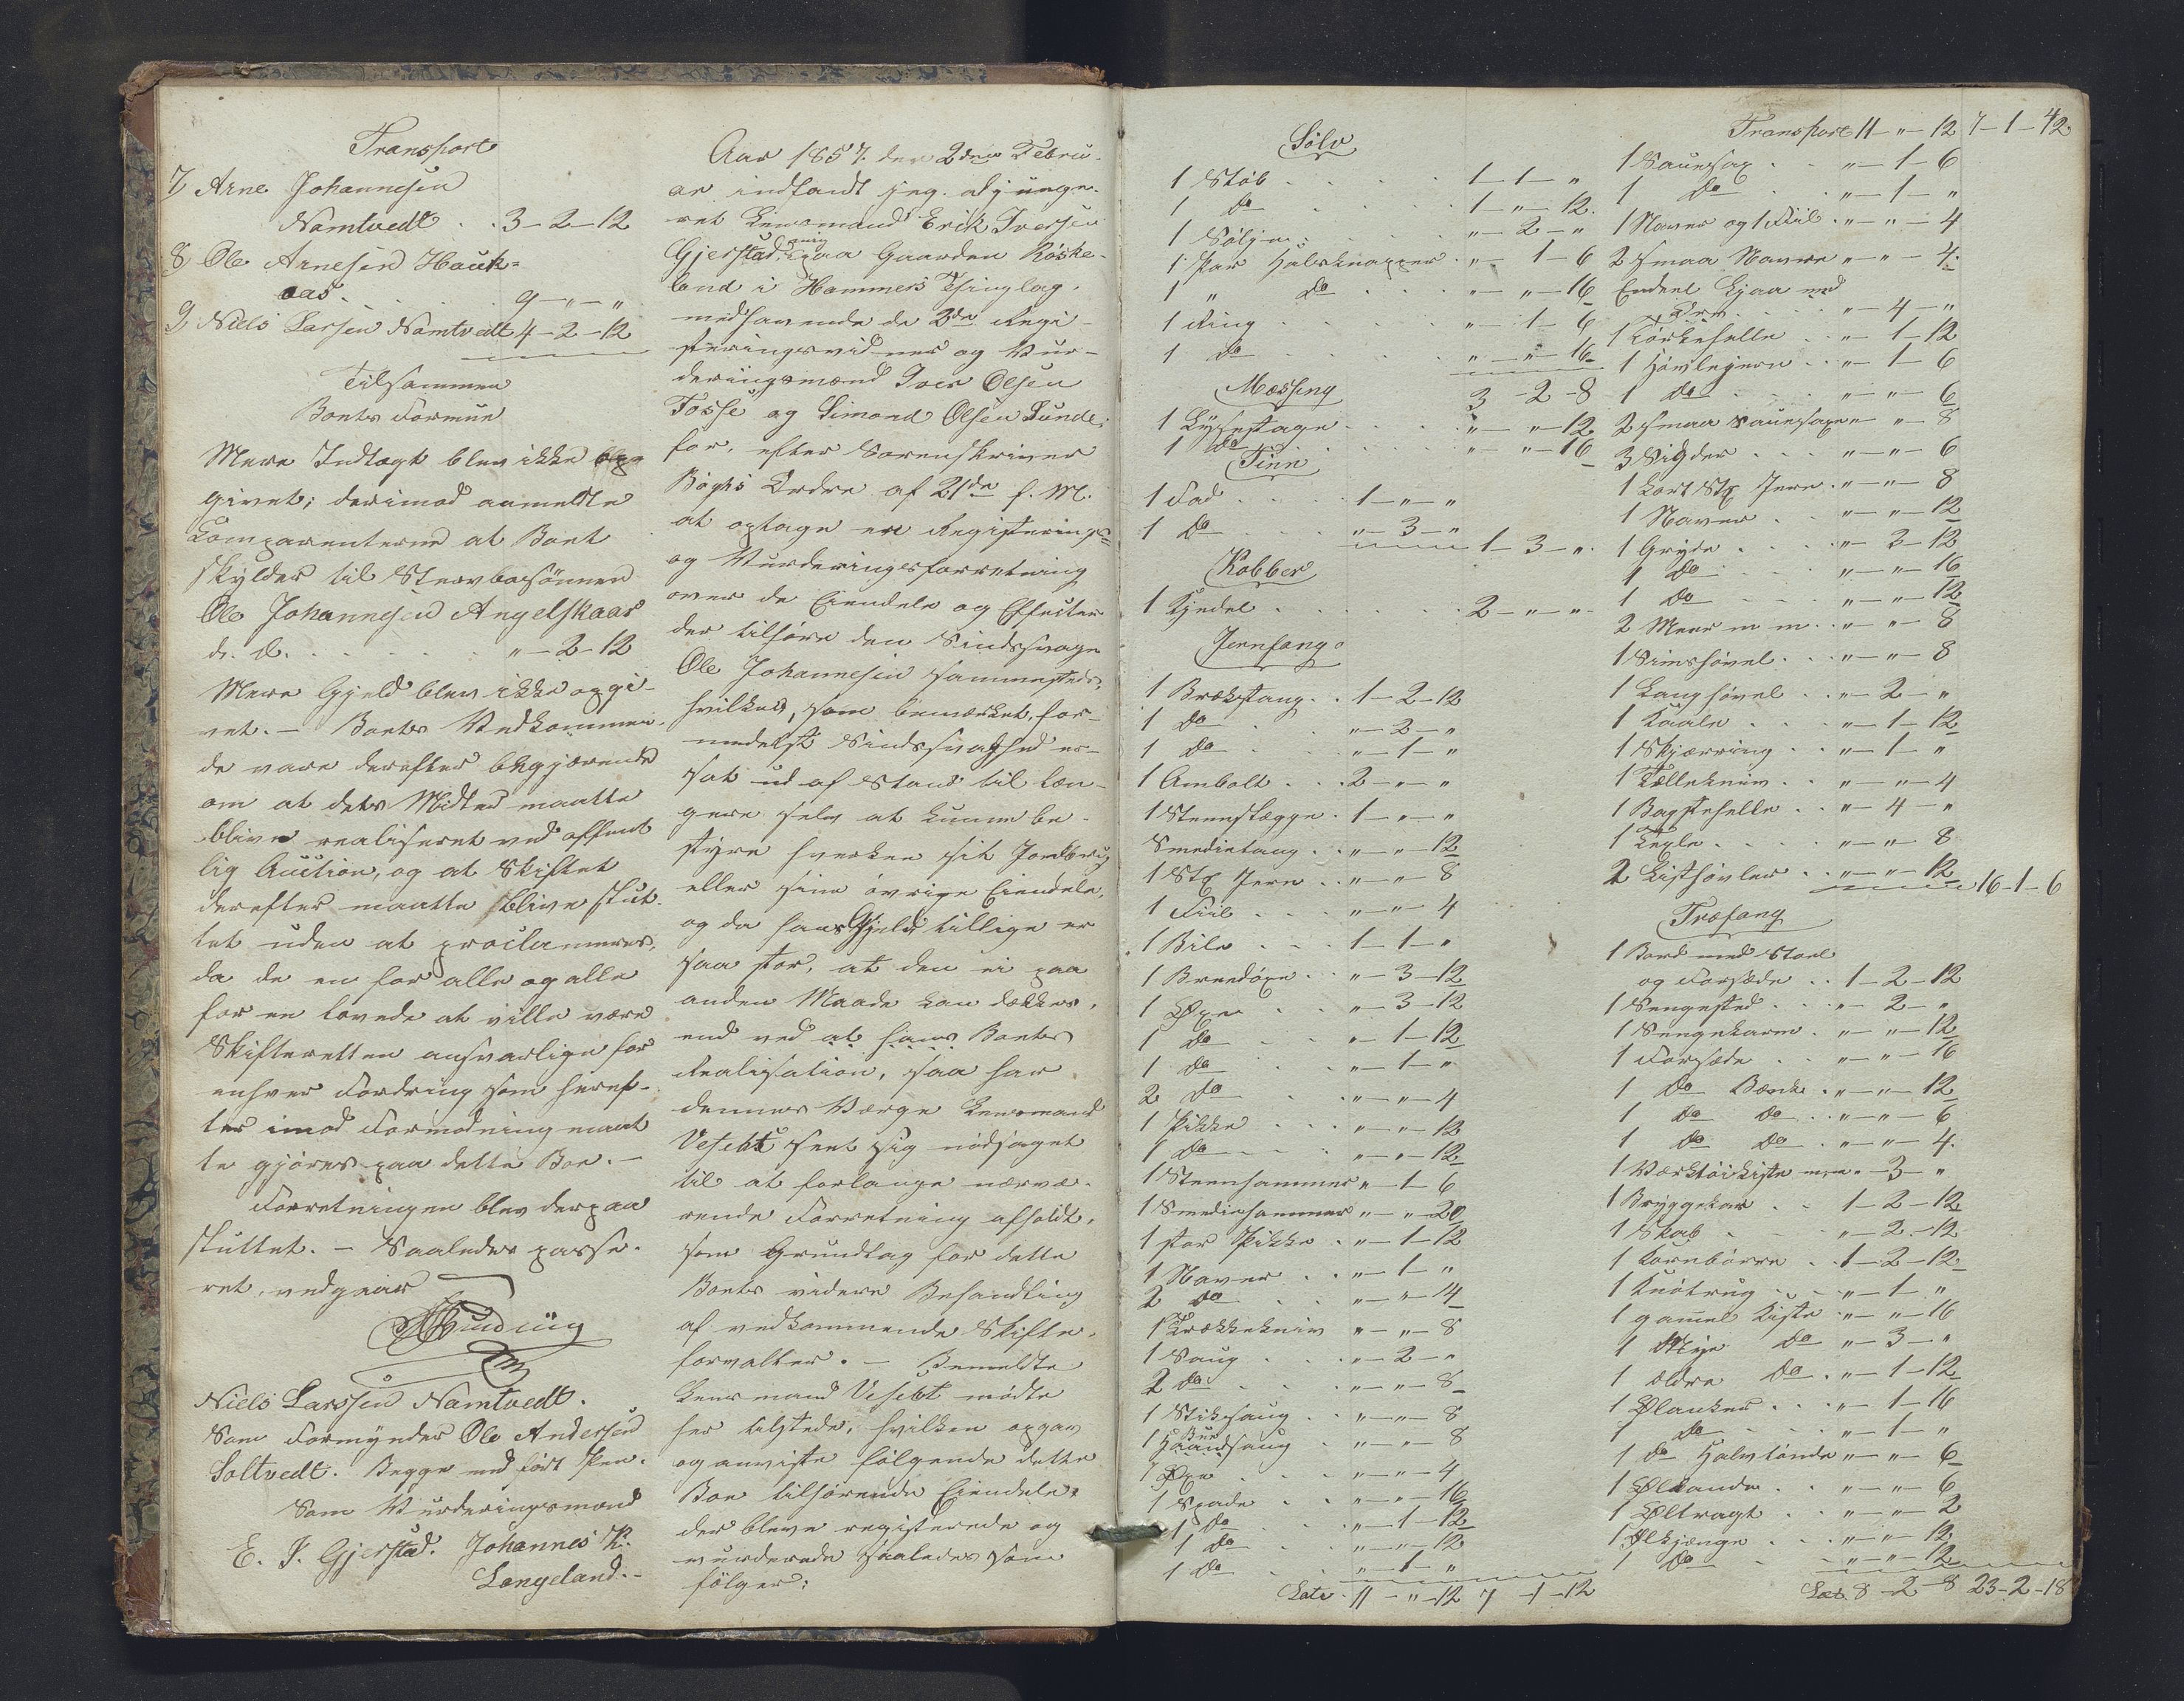 Transport
7 Arne Johannesen
Namtvedt . . 3-2-12
8 Ole Arnesen Hauk=
aas . . . . . 9-"-"
9 Niels Larsen Namtvedt 4-2-12
Tilsammen
Boets Formue
Mere Indtægt blev ikke op-
givet; derimod anmeldte
Comparenterne at Boet
skylder til Stervbosønnen
Ole Johannesen Angelskaar
d. d. . . . . . "-2-12
Mere Gjeld blev ikke opgi-
vet. - Boets Vedkommen-
de vare derefter begjærende
om at dets Midler maatte
blive realiseret ved offent
lig Auction, og at Skiftet
derefter maatte blive slut-
tet uden at proclameres,
da de en for alle og alle
for en lovede at ville være
Skifteretten ansvarlige for
enhver Fordring som heref-
ter imod Formodning maat
te gjøres paa dette Boe. -
Forretningen blev derpaa
sluttet. - Saaledes passe-
ret, vedgaar
Niels Larssen Namtvedt.
Som Formynder Ole Andersen
Soltvedt. Begge med ført Pen.
Som Vurderingsmænd
E. I. Gjerstad. Johannes K.
Langeland. -
Aar 1857. den 2den Febru-
ar indfandt jeg. adjunge-
ret Lensmand Erik Iversen
Gjerstad, mig paa Gaarden Røske-
land i Hammers Thinglag,
medhavende de 2de Regi-
steringsvidner og Vur-
deringsmænd Iver Olsen
Tosse og Simond Olsen Lunde,
for, efter Sorenskriver
Bøghs Ordre af 21de f. M.
at optage en Registerings=
og Vurderingsforretning
over de Eiendele og Effecter
der tilhøre den Sindssvage
Ole Johannesen sammesteds,
hvilken, som bemærket, for-
medelst Sindssvaghed er
sat ud af Stand til læn-
gere selv at kunne be-
styre hverken sit Jordbrug
eller sine øvrige Eiendele,
og da hans Gjeld tillige er
saa stor, at den ei paa
anden Maade kan dækkes,
end ved at hans Boets
Realisation, saa har
dennes Værge Lensmand
Vesebt seet sig nødsaget
til at forlange nærvæ-
rende Forretning afholdt,
som Grundlag for dette
Boets videre Behandling
af vedkommende Skifte-
forvalter. - Bemeldte
Lensmand Vesebt mødte
her tilstede, hvilken opgav
og anviste følgende dette
Boe tilhørende Eiendele,
der bleve registerede og
vurderede saaledes som
følger:
Sølv
1 Støb . . . . 1-1-"
1 do . . . . 1-"-12.
1 Sølje . . . . "-2-"
1 Par Halsknapper . "-1-6
1 " do . . . "-"-16
1 Ring . . . . "-1-6
1 do . . . . "-"-16
3-2-8
Messing
1 Lysestage . . . "-"-12
1 do . . . . "-"-16
Tinn
1 Fad . . . 1-"-"
1 do . . . "-3-"
1-3-".
Kobber
1 Kjedel . . . . 2-"-".
Jernfang.
1 Brækstang . . 1-2-12
1 do . . "-2-"
1 do . . "-1-"
1 Ambolt . . . 2-"-"
1 Steenslægge . 1-"-"
Smedietang . . "-"-12
1 Stk Jern . . "-"-8
1 Fiil . . . "-"-4
1 Bile . . . 1-1-"
1 Bredøxe . . "-3-12
1 Øxe . . "-3-12
1 do . . "-1-12
1 do . . "-1-"
2 do . . "-"-4
1 Pikke . . . "-"-12
1 do . . . "-"-12
1 Steenhammer "-1-6
1 Smediehammer "-"-20
1 stor Pikke . "-1-12
1 Naver . . "-1-"
2 do . . "-"-14
1 Trækkekniv "-"-8
1 Saug . . . "-2-"
2 do . . . "-"-8
1 Stiksaug . . "-"-8
1 Haandsaug . "-"-8
1 Øxe . . . "-"-4
1 Spade . . "-"-16
1 do . . "-1-12
1 do . . "-"-12
1 do . . "-1-"
Latr. 11-"-12 7-1-12
Transport 11-"-12 7-1-12
1 Sauesax . . "-1-6
1 do . . "-1-"
1 Naver og 1 Fiil . "-"-4
2 smaa Navre "-"-4.
Endeel Ljaa med
Orv . . . "-4-"
1 Tørkehelle . . "-1-12
1 Høvlejern . . "-1-6
1 do . . . "-"-6
2 smaa Sauesaxe "-"-8
3 Sigder . . . "-"-6
1 kort Stk Jern . "-"-8
1 Naver . . "-"-12
1 Gryde . . . "-2-12
1 do . . . "-"-16
1 do . . . "-"-12
2 Meer m m . . "-"-8
1 Simshøvel . . "-"-8
1 Langhøvel . . "-2-"
1 Kaale . . . "-1-12
1 Skjærring . . "-1-"
1 Tællekniv . . "-"-4
1 Bagstehelle . . "-4-"
1 Tægle . . . "-"-8
2 Listhøvler . . "-"-12
16-1-6
Træfang
1 Bord med Stoel
og Forsæde . . 1-2-12
1 Sengested . . "-2-"
1 Sengekarm . "-"-12
1 Forsæde . . "-"-16
1 do Bænk . "-"-12
1 do do . . "-"-6
1 do do . "-"-4.
1 Værktøikiste m.m. "-3-"
1 Bryggekar . . 1-2-12
1 Skab . . . "-2-12
1 Kornbørre . . 1-2-12
1 Knøtrug . . "-1-"
1 gamel Kiste . "-"-16
1 Nye do "-3-"
1 ældre do . "-1-12
1 Ølanker . . . "-1-16
1 do . . . "-1-"
1 do Halvtønde "-"-6
1 Ølkande . . "-"-6
1 Øltragt . . "-"-2
1 Ølkjænge . . "-"-12
1 do . . "-"-12
Lat. 8-2-8 23-2-18